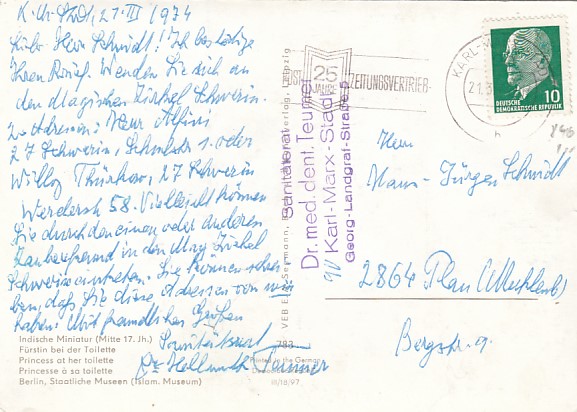 K.M.Stadt, 21. III 1974
Lieber Herr Schmidt! Ich bestätige
Ihren Brief. Wenden Sie sich an
den Magischen Zirkel Schwerin.
2 Adressen: Herr Albini,
27 Schwerin, 1 oder
Willy Thürkow, 27 Schwerin
Werderstr 58. Vielleicht können
Sie durch den einen oder anderen
Zauberfreund in den Mag. Zirkel
Schwerin eintreten. Sie können schrei-
ben, daß Sie diese Adressen von mir
haben! Mit freundlichen Grüßen
Sanitätsrat
Dr. Hellmuth Teumer
Indische Miniatur (Mitte 17. Jh.)
Fürstin bei der Toilette
Princess at her toilette
Princesse à sa toilette
Berlin, Staatliche Museen (Islam. Museum)
783
Printed in the German
III/18/97
VEB E. A. Seemann, Leipzig
Sanitätsrat
Dr. med. dent. Teumer
Karl-Marx-Stadt
Georg-Landgraf-Straße 5
25
JAHRE
ZEITUNGSVERTRIEB
KARL-M
21.3
h
10
DEUTSCHE
DEMOKRATISCHE REPUBLIK
Herrn
Hans-Jürgen Schmidt
2864 Plau (Mecklenb)
Bergstr. 9.